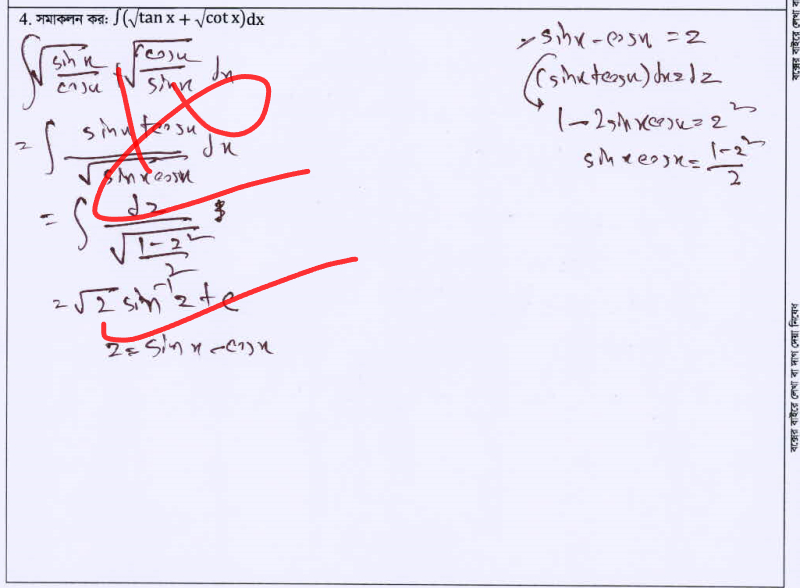 4. সমাকলন কর: ∫(√tan x + √cot x)dx
∫√(sin x/cos x) + √(cos x/sin x) dx
= ∫ (sin x + cos x)/√(sin x cos x) dx
= ∫ dz/√((1-z²)/2)
= √2 sin⁻¹ z + c
z = sin x - cos x
sin x - cos x = z
(sin x + cos x) dx = dz
1 - 2 sin x cos x = z²
sin x cos x = (1-z²)/2
বক্সের বাইরে লেখা বা দাগ দেয়া নিষেধ